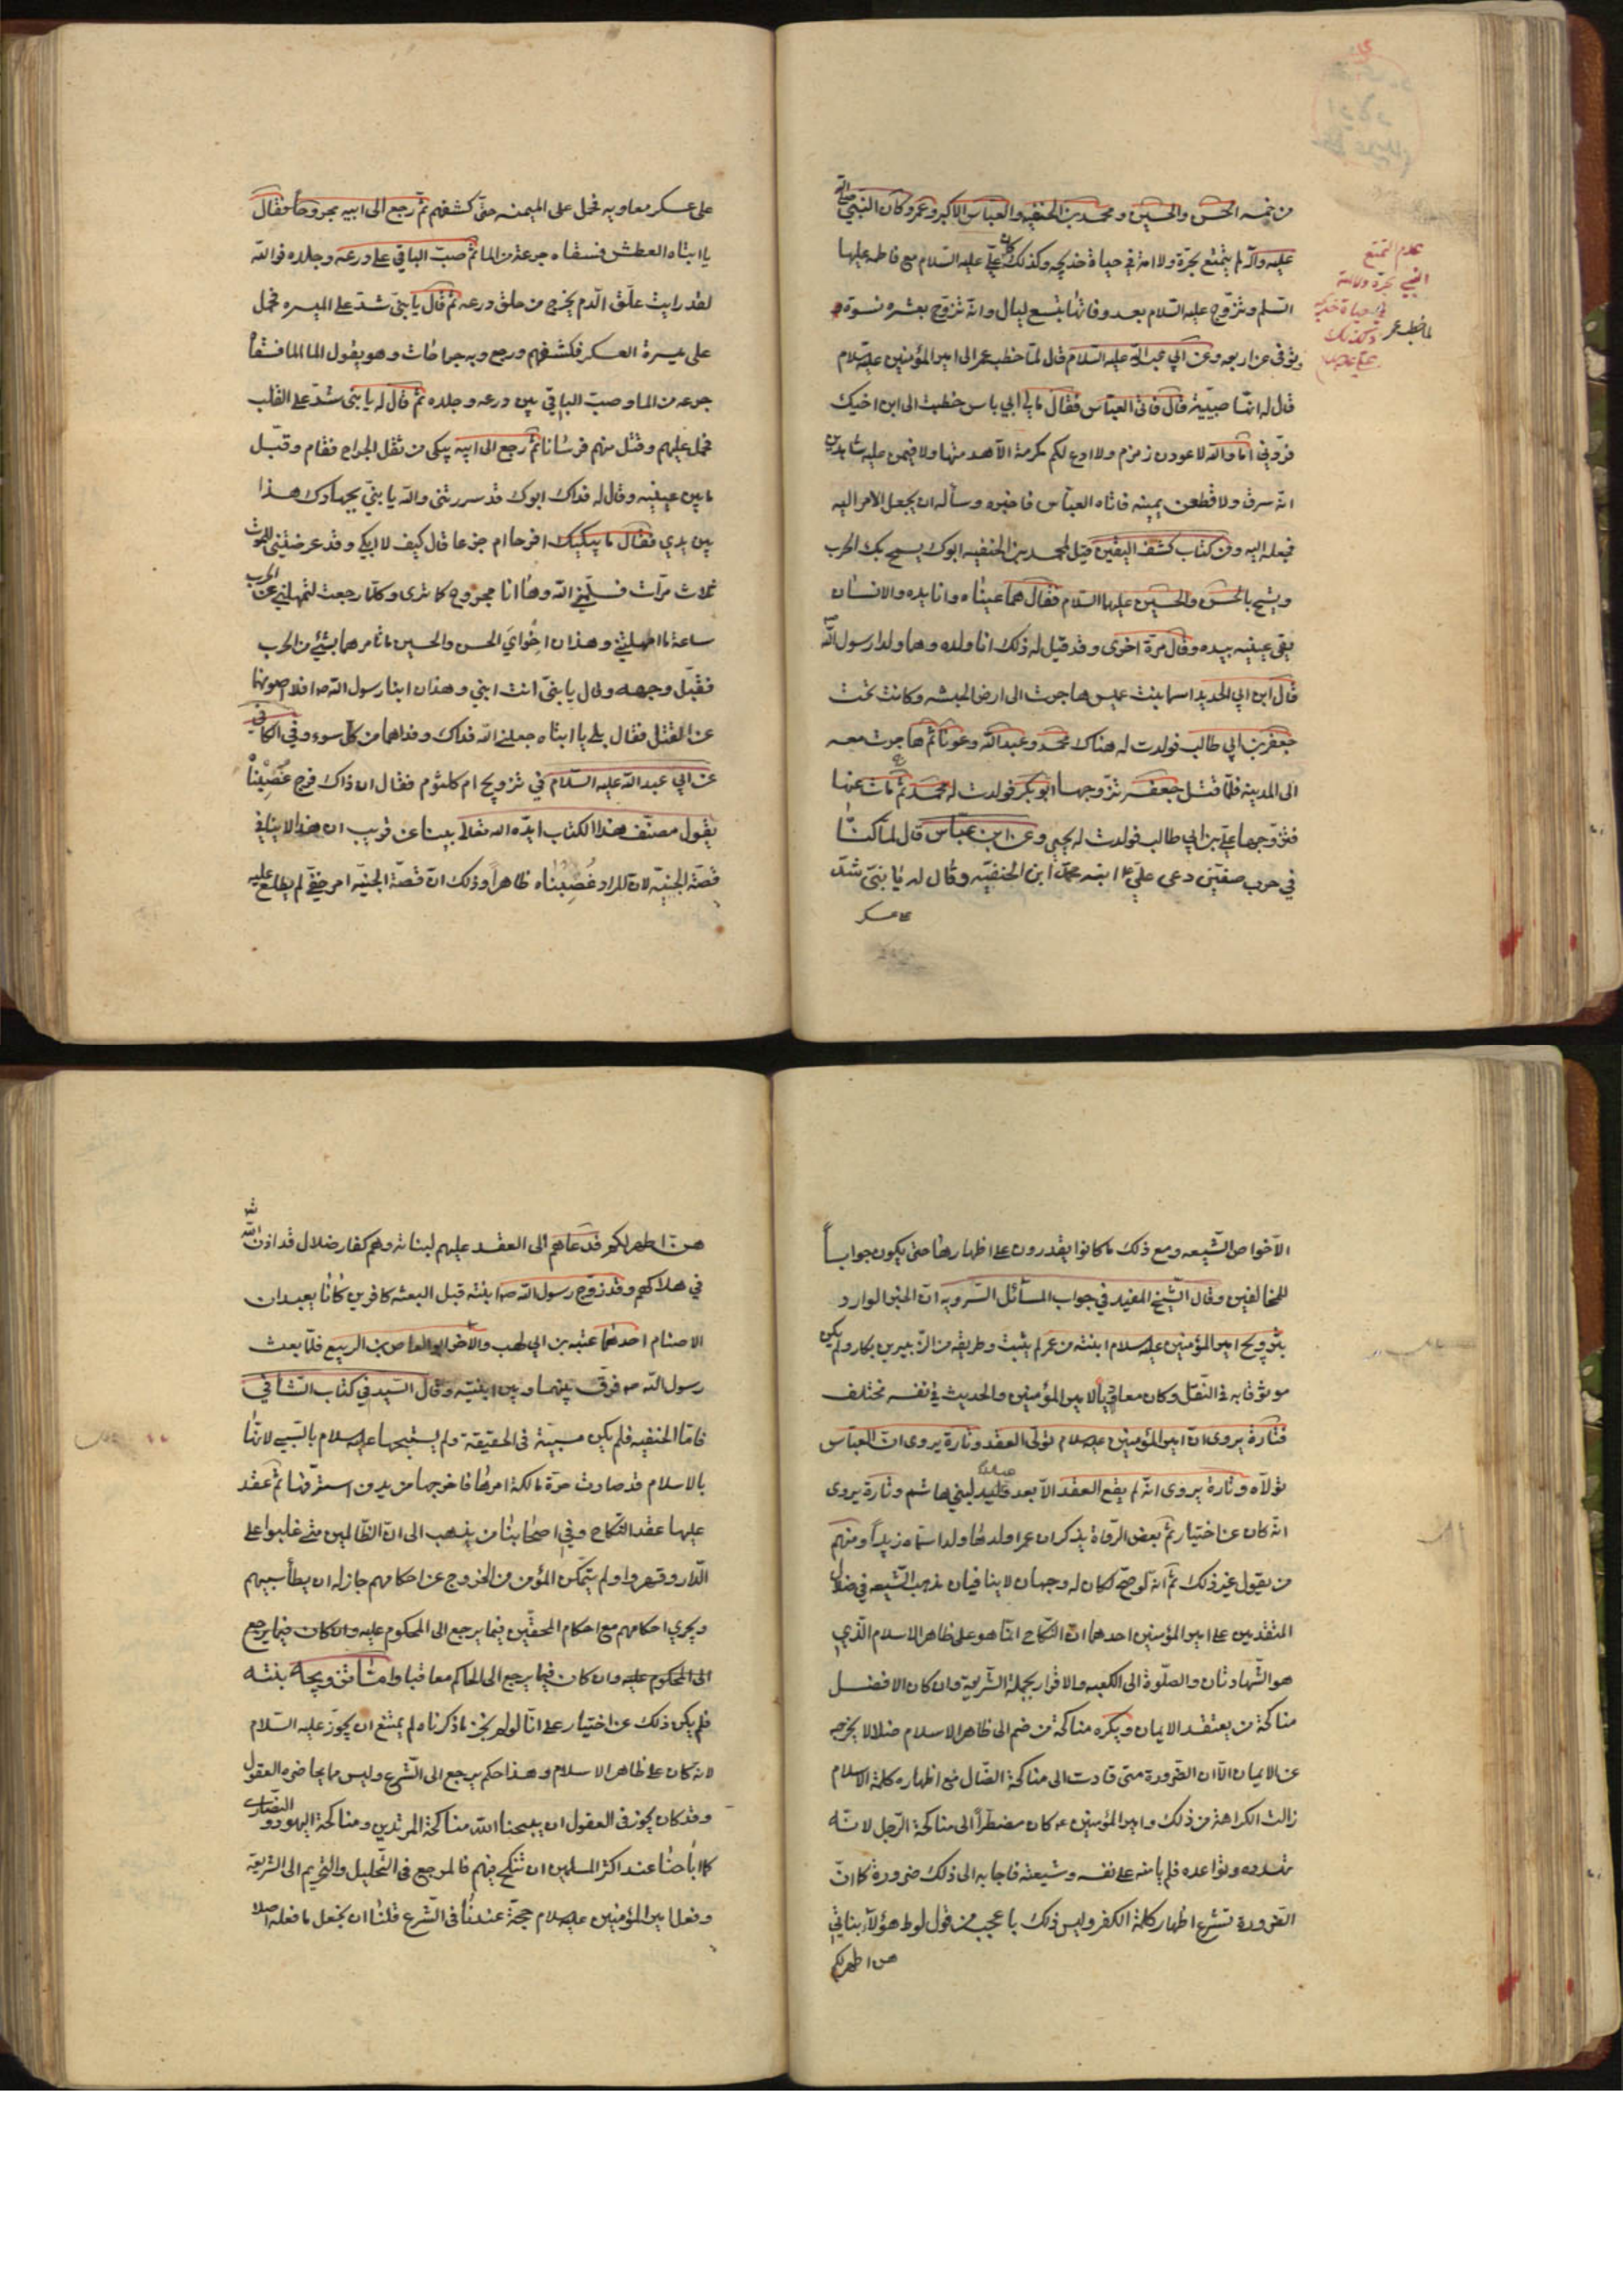 من خمسه الحسن والحسين ومحمد بن الحنفيه والعباس الاكبر وعمر وكان النبي صلى الله
عليه وآله لم يتمتع بحرة ولا امة في حياة خديجه وكذلك كان علي عليه السلام مع فاطمه عليها
السلم وتزوج عليه السلام بعد وفاتها بتسع ليال وانه تزوج بعشره نسوة
وتوفى عن اربعه وعن ابي عبد الله عليه السلام قال لما خطب عمر الى امير المؤمنين عليه السلام
قال له انها صبية قال فاتى العباس فقال مالي ابي باس خطبت الى ابن اخيك
فردني اما والله لاعودن زمزم ولا ادع لكم مكرمة الا هدمتها ولاقيمن عليه شاهدين
انه سرق ولاقطعن يمينه فاتاه العباس فاخبره وسأله ان يجعل الامر اليه
فجعله اليه ومن كتاب كشف اليقين قيل لمحمد بن الحنفيه ابوك يسمح بك الحرب
ويشح بالحسن والحسين عليهما السلام فقال هما عيناه وانا يده والانسان
يقي عينيه بيده وقال مرة اخرى وقد قيل له ذلك انا ولده وهما ولدا رسول الله ص
قال ابن ابي الحديد اسما بنت عميس هاجرت الى ارض الحبشه وكانت تحت
جعفر بن ابي طالب فولدت له هناك محمد وعبد الله وعونا ثم هاجرت معه
الى المدينه فلما قتل جعفر تزوجها ابو بكر فولدت له محمد ثم مات عنها
فتزوجها علي بن ابي طالب فولدت له يحيى وعن ابن عباس قال لما كنا
في حرب صفين دعى علي ع ابنه محمد ابن الحنفيه وقال له يا بني شد
على عسكر
عدم التمتع
النبي بحرة ولا امة
في حياة خديجه
وكذلك
علي
لما خطب عمر
على عسكر معاويه فحمل على الميمنه حتى كشفهم ثم رجع الى ابيه مجروحا فقال
يا ابتاه العطش فسقاه جرعة من الما ثم صب الباقي على درعه وجلده فوالله
لقد رايت علق الدم يخرج من حلق درعه ثم قال يا بني شد على الميسره فحمل
على ميسرة العسكر فكشفهم ورجع وبه جراحات وهو يقول الما الما فسقاه
جرعه من الما وصب الباقي بين درعه وجلده ثم قال له يا بني شد على القلب
فحمل عليهم وقتل منهم فرسانا ثم رجع الى ابيه يبكي من ثقل الجراح فقام وقبل
ما بين عينيه وقال له فداك ابوك قد سررتني والله يا بني بجهادك هذا
بين يدي فقال ما يبكيك افرحا ام جزعا قال كيف لا ابكي وقد عرضتني للموت
ثلاث مرات فسلمني الله وها انا مجروح كما ترى وكلما رجعت لتمهلني عن الحرب
ساعة ما امهلتني وهذان اخواي الحسن والحسين ما تامرهما بشيء من الحرب
فقبل وجهه وقال يا بني انت ابني وهذان ابنا رسول الله ص افلا اصونهما
عن القتل فقال بلى يا ابتاه جعلني الله فداك وفداهما من كل سوء وفي الكافي
عن ابي عبد الله عليه السلام في تزويج ام كلثوم فقال ان ذاك فرج غصبناه
يقول مصنف هذا الكتاب ايده الله تعالى بينا عن قريب ان هذا لا ينافي
قصة الجنيه لان المراد غصبناه ظاهرا وذلك ان قصة الجنيه امر خفي لم يطلع عليه
الا خواص الشيعه ومع ذلك ما كانوا يقدرون على اظهارها حتى يكون جوابا
للمخالفين وقال الشيخ المفيد في جواب المسائل السرويه ان الخبر الوارد
بتزويج امير المؤمنين عليه السلام ابنته من عمر لم يثبت وطريقه من الزبير بن بكار ولم يكن
موثوقا به في النقل وكان معاديا لامير المؤمنين والحديث في نفسه مختلف
فتارة يروى ان امير المؤمنين عليه السلام تولى العقد وتارة يروى ان العباس
تولاه وتارة يروى انه لم يقع العقد الا بعد تهديد لبني هاشم وتارة يروى
انه كان عن اختيار ثم بعض الرواة يذكر ان عمر اولدها ولدا سماه زيدا ومنهم
من يقول غير ذلك ثم انه لو صح لكان له وجهان لا ينافيان مذهب الشيعه في ضلال
المتقدمين على امير المؤمنين احدهما ان النكاح انما هو على ظاهر الاسلام الذي
هو الشهادتان والصلوة الى الكعبه والاقرار بجملة الشريعة وان كان الافضل
مناكحة من يعتقد الايمان ويكره مناكحة من ضم الى ظاهر الاسلام ضلالا يخرجه
عن الايمان الا ان الضرورة متى قادت الى مناكحة الضال مع اظهاره كلمة الاسلام
زالت الكراهة من ذلك وامير المؤمنين ع كان مضطرا الى مناكحة الرجل لانه
تهدده وتواعده فلم يامنه على نفسه وشيعته فاجابه الى ذلك ضرورة كما ان
الضرورة تشرع اظهار كلمة الكفر وليس ذلك باعجب من قول لوط هؤلاء بناتي
هن اطهر لكم
هن اطهر لكم فدعاهم الى العقد عليهم لبناته وهم كفار ضلال قد اذن الله
في هلاكهم وقد زوج رسول الله ص ابنته قبل البعثه كافرين كانا يعبدان
الاصنام احدهما عتبه بن ابي لهب والاخر ابو العاص بن الربيع فلما بعث
رسول الله ص فرق بينهما وبين ابنتيه وقال السيد في كتاب الشافي
فاما الحنفيه فلم يكن سبية في الحقيقة ولم يستبحها عليه السلام بالسبي لانها
بالاسلام قد صارت حرة مالكة امرها فاخرجها من يد من استرقها ثم عقد
عليها عقد النكاح وفي اصحابنا من يذهب الى ان الظالمين متى غلبوا على
الدار وقهروا ولم يتمكن المؤمن من الخروج عن احكامهم جاز له ان يطأ سبيهم
ويجري احكامهم مع احكام المحقين فيما يرجع الى المحكوم عليه وان كان فيما يرجع
الى المحكوم عليه وان كان فيما يرجع الى الحاكم معاقبا واما تزويجه بنته
فلم يكن ذلك عن اختيار على انا لو لم يجز ما ذكرناه لم يمتنع ان يجوز عليه السلام
لانه كان على ظاهر الاسلام وهذا حكم يرجع الى الشرع وليس مما يخاضره العقول
وقد كان يجوز في العقول ان يبيحنا الله مناكحة المرتدين ومناكحة اليهود والنصارى
كما اباحنا عند اكثر المسلمين ان ننكح فيهم فالمرجع في التحليل والتحريم الى الشريعة
وفعل امير المؤمنين عليه السلام حجة عندنا في الشرع فلنا ان نجعل ما فعله اصلا